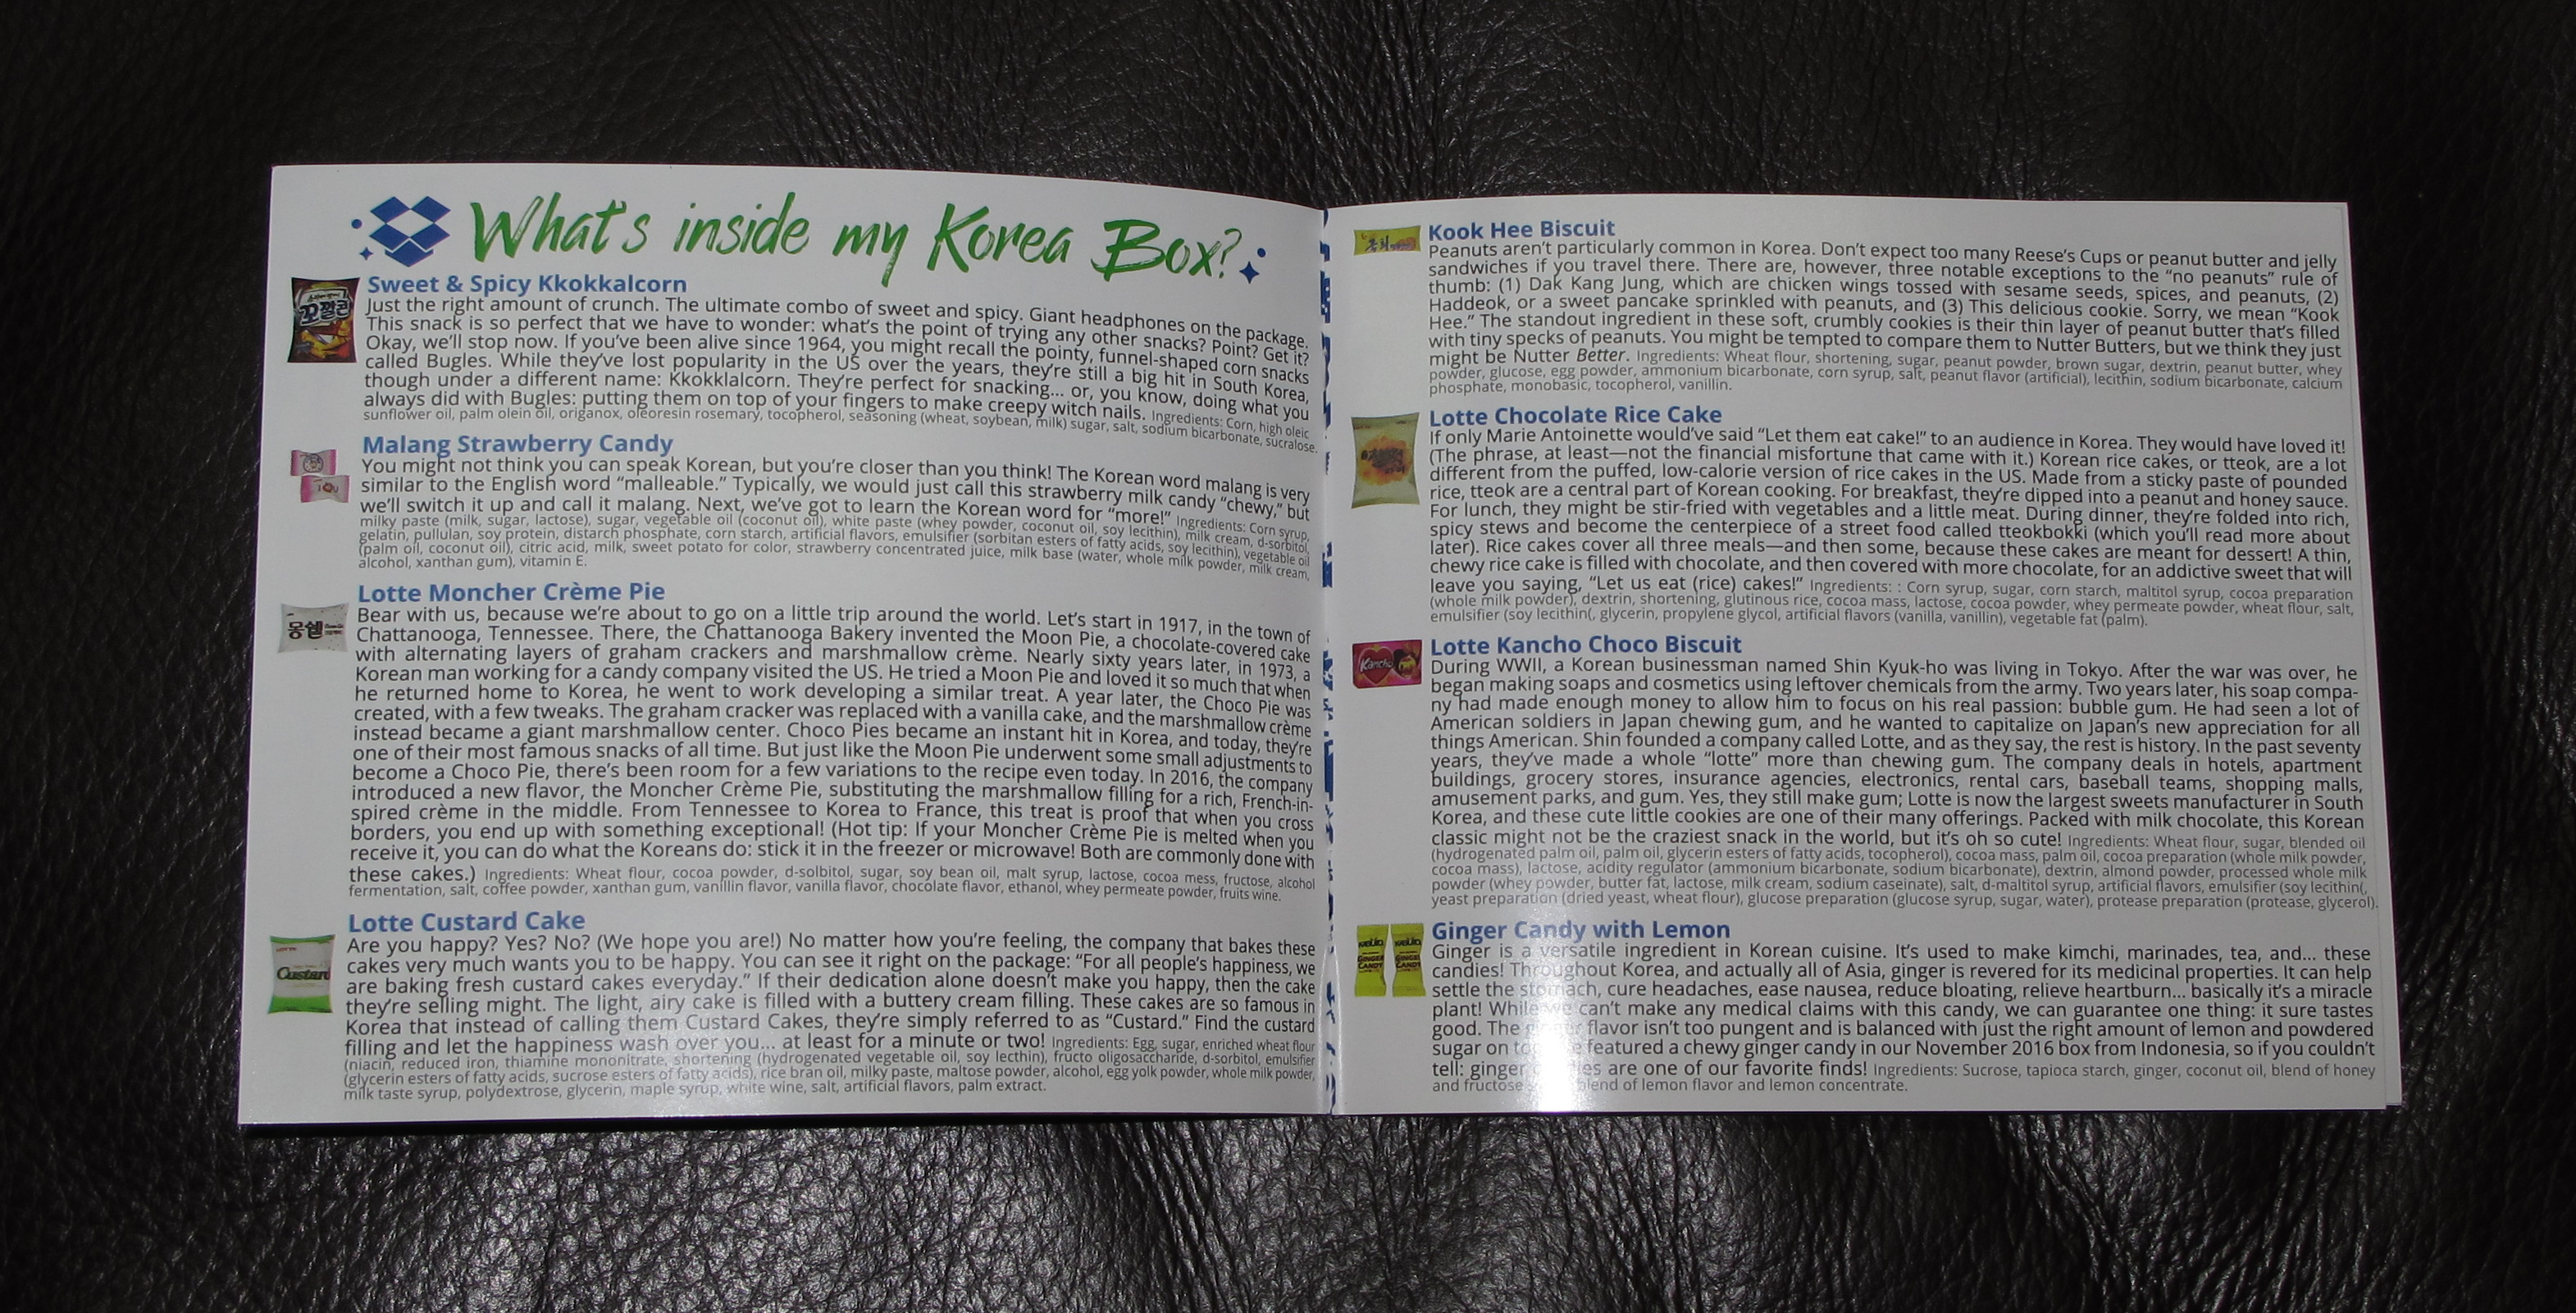 What's inside my Korea Box?
Sweet & Spicy Kkokkalcorn
Just the right amount of crunch. The ultimate combo of sweet and spicy. Giant headphones on the package.
This snack is so perfect that we have to wonder: what's the point of trying any other snacks? Point? Get it?
Okay, we'll stop now. If you've been alive since 1964, you might recall the pointy, funnel-shaped corn snacks
called Bugles. While they've lost popularity in the US over the years, they're still a big hit in South Korea,
though under a different name: Kkokklalcorn. They're perfect for snacking... or, you know, doing what you
always did with Bugles: putting them on top of your fingers to make creepy witch nails. Ingredients: Corn, high oleic
sunflower oil, palm olein oil, origanox, oleoresin rosemary, tocopherol, seasoning (wheat, soybean, milk) sugar, salt, sodium bicarbonate, sucralose.
꼬깔콘
Malang Strawberry Candy
You might not think you can speak Korean, but you're closer than you think! The Korean word malang is very
similar to the English word "malleable." Typically, we would just call this strawberry milk candy "chewy," but
we'll switch it up and call it malang. Next, we've got to learn the Korean word for "more!" Ingredients: Corn syrup,
milky paste (milk, sugar, lactose), sugar, vegetable oil (coconut oil), white paste (whey powder, coconut oil, soy lecithin), milk cream, d-sorbitol,
gelatin, pullulan, soy protein, distarch phosphate, corn starch, artificial flavors, emulsifier (sorbitan esters of fatty acids, soy lecithin), vegetable oil
(palm oil, coconut oil), citric acid, milk, sweet potato for color, strawberry concentrated juice, milk base (water, whole milk powder, milk cream,
alcohol, xanthan gum), vitamin E.
Lotte Moncher Crème Pie
Bear with us, because we're about to go on a little trip around the world. Let's start in 1917, in the town of
Chattanooga, Tennessee. There, the Chattanooga Bakery invented the Moon Pie, a chocolate-covered cake
with alternating layers of graham crackers and marshmallow crème. Nearly sixty years later, in 1973, a
Korean man working for a candy company visited the US. He tried a Moon Pie and loved it so much that when
he returned home to Korea, he went to work developing a similar treat. A year later, the Choco Pie was
created, with a few tweaks. The graham cracker was replaced with a vanilla cake, and the marshmallow crème
instead became a giant marshmallow center. Choco Pies became an instant hit in Korea, and today, they're
one of their most famous snacks of all time. But just like the Moon Pie underwent some small adjustments to
become a Choco Pie, there's been room for a few variations to the recipe even today. In 2016, the company
introduced a new flavor, the Moncher Crème Pie, substituting the marshmallow filling for a rich, French-in-
spired crème in the middle. From Tennessee to Korea to France, this treat is proof that when you cross
borders, you end up with something exceptional! (Hot tip: If your Moncher Crème Pie is melted when you
receive it, you can do what the Koreans do: stick it in the freezer or microwave! Both are commonly done with
these cakes.) Ingredients: Wheat flour, cocoa powder, d-solbitol, sugar, soy bean oil, malt syrup, lactose, cocoa mess, fructose, alcohol
fermentation, salt, coffee powder, xanthan gum, vanillin flavor, vanilla flavor, chocolate flavor, ethanol, whey permeate powder, fruits wine.
몽쉘
Lotte Custard Cake
Are you happy? Yes? No? (We hope you are!) No matter how you're feeling, the company that bakes these
cakes very much wants you to be happy. You can see it right on the package: "For all people's happiness, we
are baking fresh custard cakes everyday." If their dedication alone doesn't make you happy, then the cake
they're selling might. The light, airy cake is filled with a buttery cream filling. These cakes are so famous in
Korea that instead of calling them Custard Cakes, they're simply referred to as "Custard." Find the custard
filling and let the happiness wash over you... at least for a minute or two! Ingredients: Egg, sugar, enriched wheat flour
(niacin, reduced iron, thiamine mononitrate, shortening (hydrogenated vegetable oil, soy lecthin), fructo oligosaccharide, d-sorbitol, emulsifier
(glycerin esters of fatty acids, sucrose esters of fatty acids), rice bran oil, milky paste, maltose powder, alcohol, egg yolk powder, whole milk powder,
milk taste syrup, polydextrose, glycerin, maple syrup, white wine, salt, artificial flavors, palm extract.
Custard
Kook Hee Biscuit
Peanuts aren't particularly common in Korea. Don't expect too many Reese's Cups or peanut butter and jelly
sandwiches if you travel there. There are, however, three notable exceptions to the "no peanuts" rule of
thumb: (1) Dak Kang Jung, which are chicken wings tossed with sesame seeds, spices, and peanuts, (2)
Haddeok, or a sweet pancake sprinkled with peanuts, and (3) This delicious cookie. Sorry, we mean "Kook
Hee." The standout ingredient in these soft, crumbly cookies is their thin layer of peanut butter that's filled
with tiny specks of peanuts. You might be tempted to compare them to Nutter Butters, but we think they just
might be Nutter Better. Ingredients: Wheat flour, shortening, sugar, peanut powder, brown sugar, dextrin, peanut butter, whey
powder, glucose, egg powder, ammonium bicarbonate, corn syrup, salt, peanut flavor (artificial), lecithin, sodium bicarbonate, calcium
phosphate, monobasic, tocopherol, vanillin.
Lotte Chocolate Rice Cake
If only Marie Antoinette would've said "Let them eat cake!" to an audience in Korea. They would have loved it!
(The phrase, at least—not the financial misfortune that came with it.) Korean rice cakes, or tteok, are a lot
different from the puffed, low-calorie version of rice cakes in the US. Made from a sticky paste of pounded
rice, tteok are a central part of Korean cooking. For breakfast, they're dipped into a peanut and honey sauce.
For lunch, they might be stir-fried with vegetables and a little meat. During dinner, they're folded into rich,
spicy stews and become the centerpiece of a street food called tteokbokki (which you'll read more about
later). Rice cakes cover all three meals—and then some, because these cakes are meant for dessert! A thin,
chewy rice cake is filled with chocolate, and then covered with more chocolate, for an addictive sweet that will
leave you saying, "Let us eat (rice) cakes!" Ingredients: : Corn syrup, sugar, corn starch, maltitol syrup, cocoa preparation
(whole milk powder), dextrin, shortening, glutinous rice, cocoa mass, lactose, cocoa powder, whey permeate powder, wheat flour, salt,
emulsifier (soy lecithin(, glycerin, propylene glycol, artificial flavors (vanilla, vanillin), vegetable fat (palm).
Lotte Kancho Choco Biscuit
During WWII, a Korean businessman named Shin Kyuk-ho was living in Tokyo. After the war was over, he
began making soaps and cosmetics using leftover chemicals from the army. Two years later, his soap compa-
ny had made enough money to allow him to focus on his real passion: bubble gum. He had seen a lot of
American soldiers in Japan chewing gum, and he wanted to capitalize on Japan's new appreciation for all
things American. Shin founded a company called Lotte, and as they say, the rest is history. In the past seventy
years, they've made a whole "lotte" more than chewing gum. The company deals in hotels, apartment
buildings, grocery stores, insurance agencies, electronics, rental cars, baseball teams, shopping malls,
amusement parks, and gum. Yes, they still make gum; Lotte is now the largest sweets manufacturer in South
Korea, and these cute little cookies are one of their many offerings. Packed with milk chocolate, this Korean
classic might not be the craziest snack in the world, but it's oh so cute! Ingredients: Wheat flour, sugar, blended oil
(hydrogenated palm oil, palm oil, glycerin esters of fatty acids, tocopherol), cocoa mass, palm oil, cocoa preparation (whole milk powder,
cocoa mass), lactose, acidity regulator (ammonium bicarbonate, sodium bicarbonate), dextrin, almond powder, processed whole milk
powder (whey powder, butter fat, lactose, milk cream, sodium caseinate), salt, d-maltitol syrup, artificial flavors, emulsifier (soy lecithin(,
yeast preparation (dried yeast, wheat flour), glucose preparation (glucose syrup, sugar, water), protease preparation (protease, glycerol).
Kancho
Ginger Candy with Lemon
Ginger is a versatile ingredient in Korean cuisine. It's used to make kimchi, marinades, tea, and... these
candies! Throughout Korea, and actually all of Asia, ginger is revered for its medicinal properties. It can help
settle the stomach, cure headaches, ease nausea, reduce bloating, relieve heartburn... basically it's a miracle
plant! While we can't make any medical claims with this candy, we can guarantee one thing: it sure tastes
good. The ginger flavor isn't too pungent and is balanced with just the right amount of lemon and powdered
sugar on featured a chewy ginger candy in our November 2016 box from Indonesia, so if you couldn't
tell: ginger are one of our favorite finds! Ingredients: Sucrose, tapioca starch, ginger, coconut oil, blend of honey
and fructose blend of lemon flavor and lemon concentrate.
GINGER CANDY
GINGER CANDY